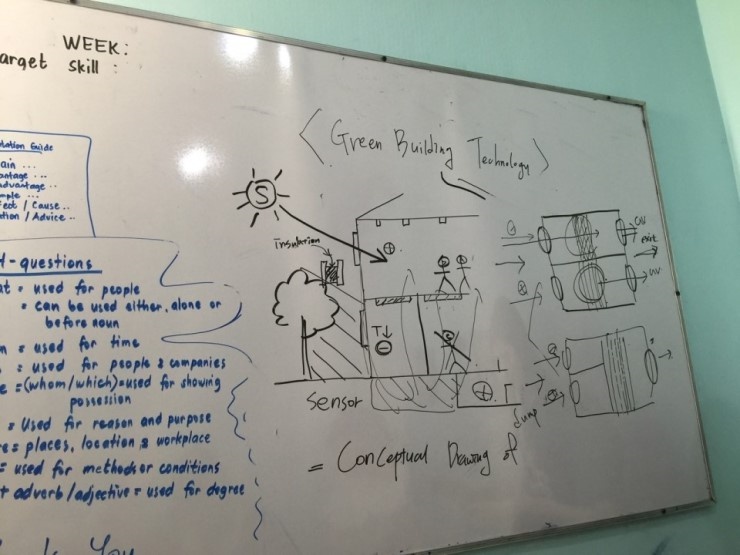 WEEK:
arget skill :
lation Guide
ain ...
antage ...
dvantage ..
mple ...
ect / Cause ..
tion / Advice ..
H-questions
at = used for people
= can be used either, alone or
before noun
n = used for time
= used for people & companies
e = (whom/which) = used for showing
possession
= Used for reason and purpose
re = places, location, & workplace
= used for methods or conditions
+ adverb/adjective = used for degree
You
< Green Building Technology >
S
Insulation
+
T↓
−
Sensor
+
dump
exit
= Conceptual Drawing of